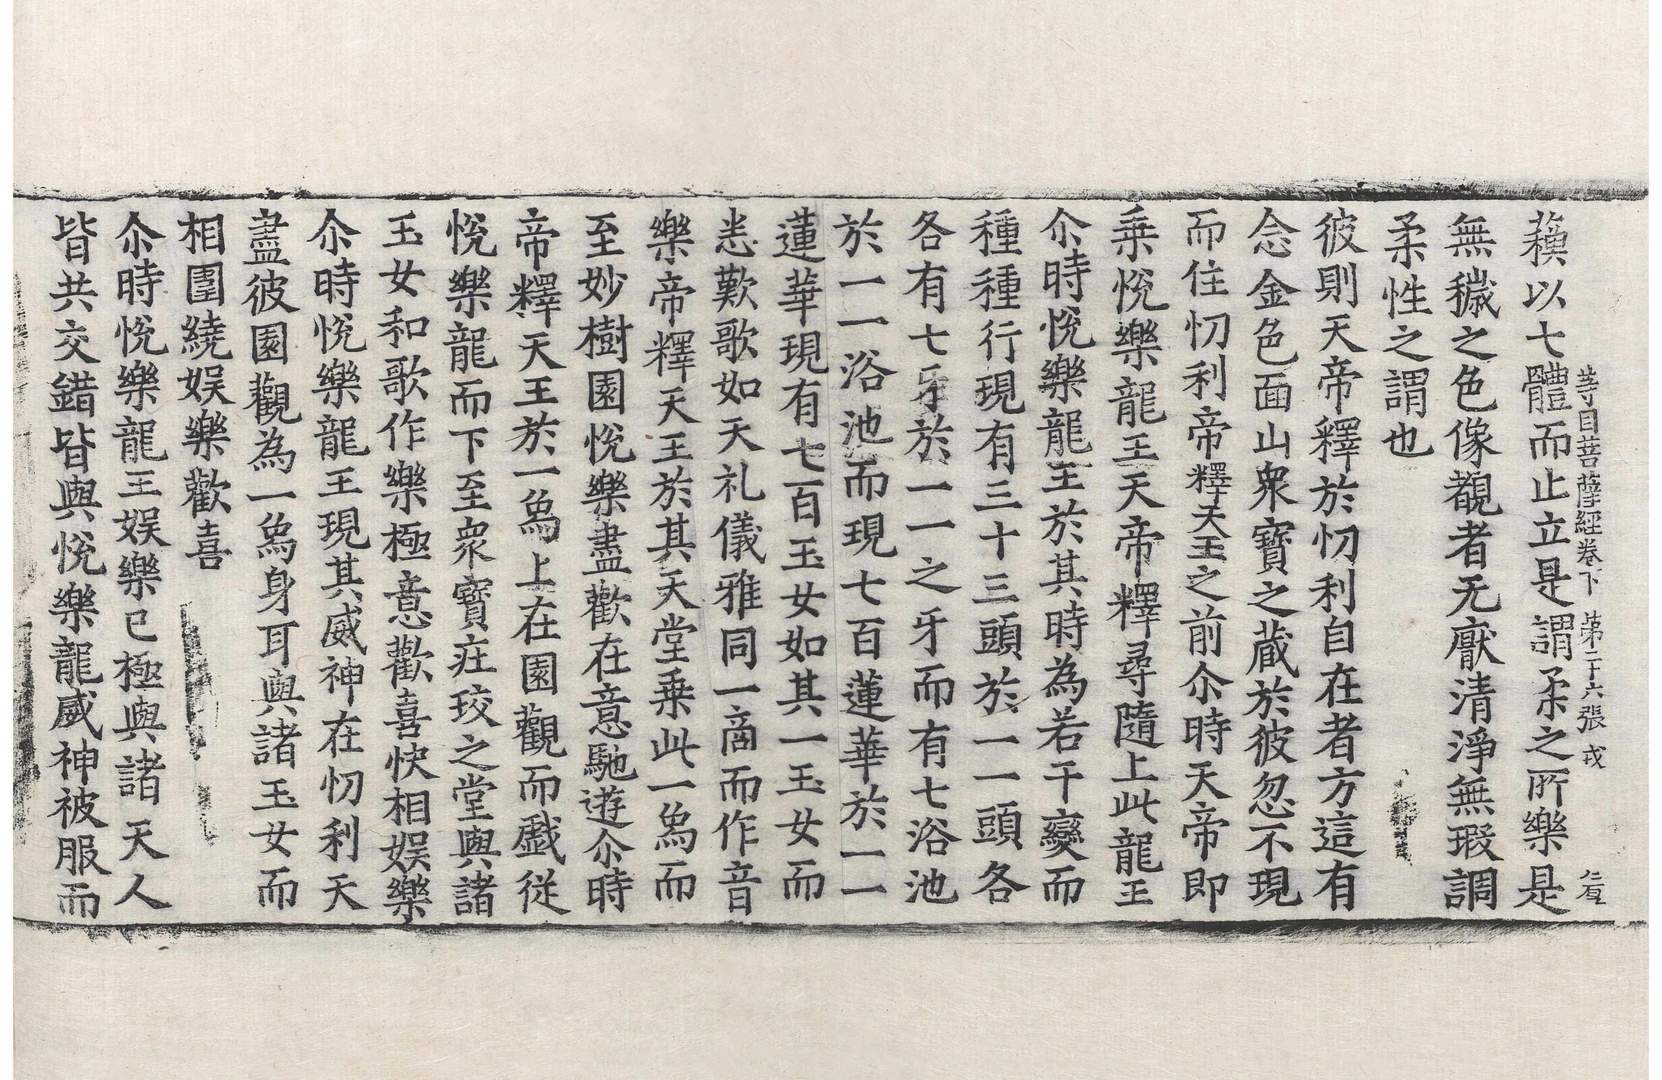 等目菩薩經卷下 第二十六張 戎
䕸以七體而止立是謂柔之所樂是
無穢之色像覩者无厭清淨無瑕調
柔性之謂也
彼則天帝釋於忉利自在者方這有
念金色面山衆寶之蔵於彼忽不現
而住忉利帝釋天王之前尒時天帝即
乗悅樂龍王天帝釋尋隨上此龍王
尒時悅樂龍王於其時為若干變而
種種行現有三十三頭於一一頭各
各有七牙於一一之牙而有七浴池
於一一浴池而現七百蓮華於一一
蓮華現有七百玉女如其一玉女而
悉歎歌如天礼儀雅同一啇而作音
樂帝釋天王於其天堂乗此一象而
至妙樹園悅樂盡歡在意馳遊尒時
帝釋天王於一象上在園觀而戲従
悅樂龍而下至衆寶疘珓之堂與諸
玉女和歌作樂極意歡喜快相娱樂
尒時悅樂龍王現其威神在忉利天
盡彼園觀為一象身耳與諸玉女而
相圍繞娱樂歡喜
尒時悅樂龍王娱樂已極與諸天人
皆共交錯皆與悅樂龍威神被服而